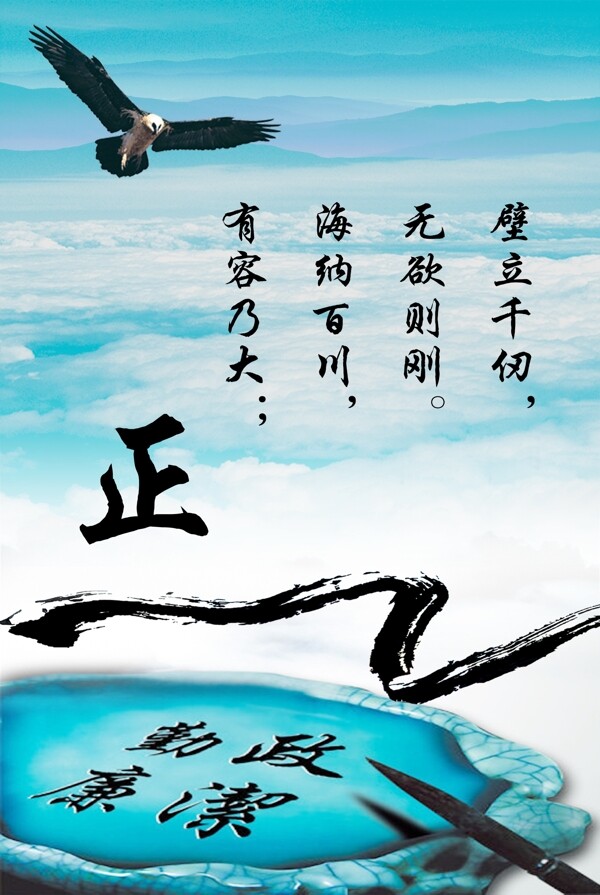 壁立千仞，
无欲则刚。
海纳百川，
有容乃大；
正
勤政
廉潔